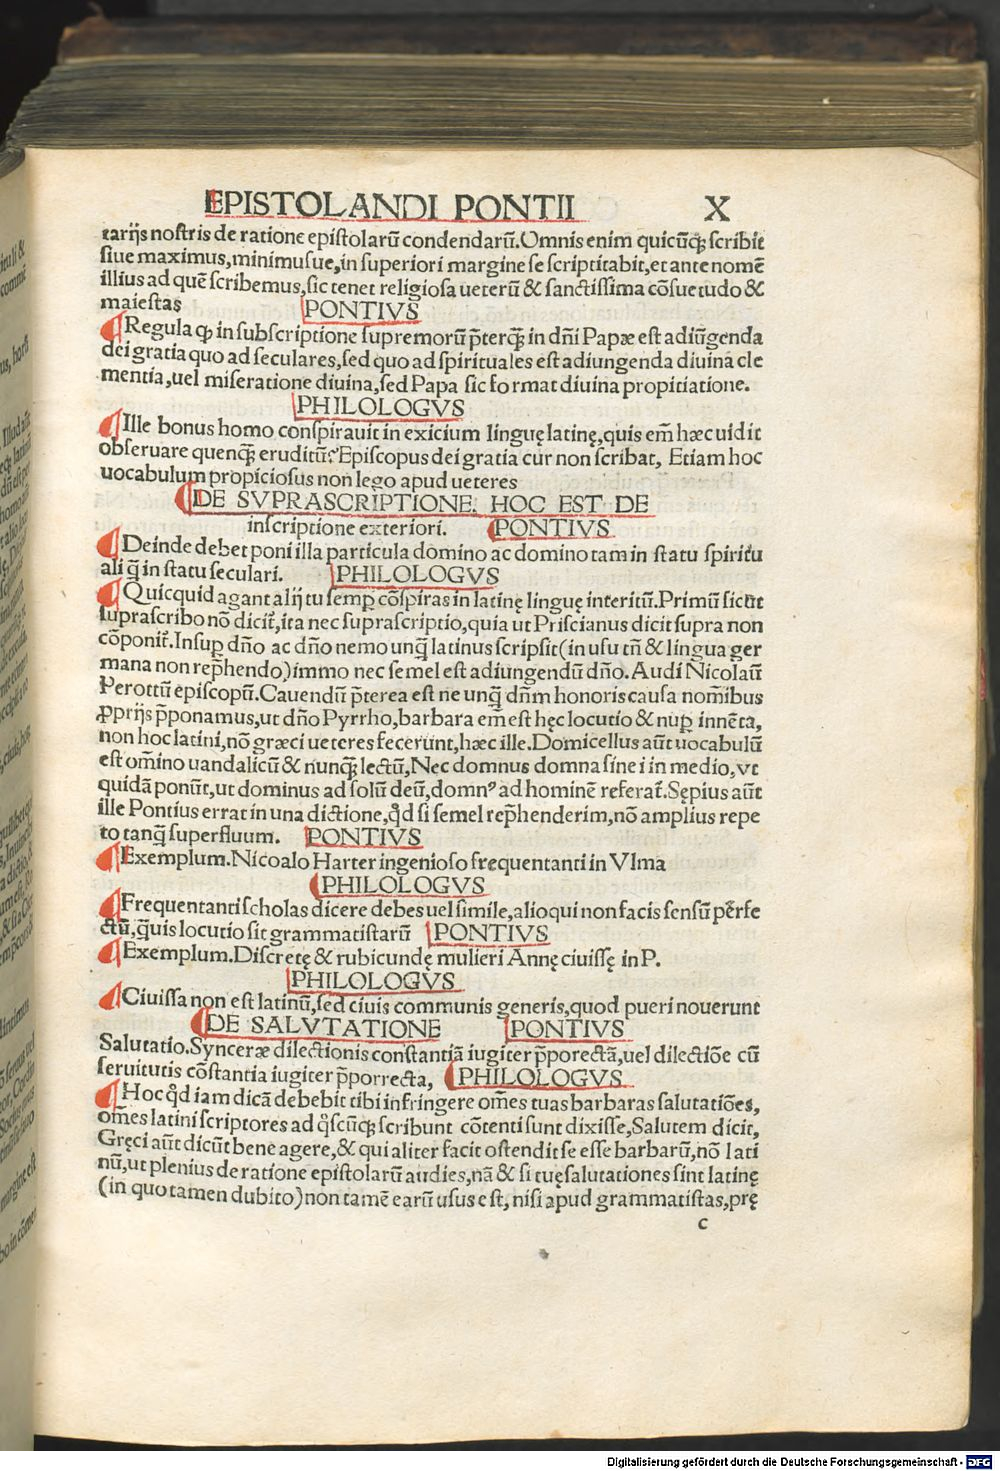 EPISTOLANDI PONTII X
tarijs nostris de ratione epistolarū condendarū. Omnis enim quicūqꝫ scribit
siue maximus, minimusue, in superiori margine se scriptitabit, et ante nomē
illius ad quē scribemus, sic tenet religiosa ueterū & sanctissima cōsuetudo &
maiestas PONTIVS
Regula ꝙ in subscriptione supremorū p̄terqꝫ in dn̄i Papæ est adiūgenda
dei gratia quo ad seculares, sed quo ad spirituales est adiungenda diuina cle
mentia, uel miseratione diuina, sed Papa sic format diuina propitiatione.
PHILOLOGVS
Ille bonus homo conspirauit in exicium linguę latinę, quis em̄ hæc uidit
obseruare quenqꝫ eruditū? Episcopus dei gratia cur non scribat, Etiam hoc
uocabulum propiciosus non lego apud ueteres
DE SVPRASCRIPTIONE. HOC EST DE
inscriptione exteriori. PONTIVS
Deinde debet poni illa particula domino ac domino tam in statu spiritu
ali q̄ in statu seculari. PHILOLOGVS
Quicquid agant alij tu semꝑ cōspiras in latinę linguę interitū. Primū sicut
suprascribo nō dicit̄, ita nec suprascriptio, quia ut Priscianus dicit supra non
cōponit̄. Insuꝑ dn̄o ac dn̄o nemo unq̄ latinus scripsit (in usu tn̄ & lingua ger
mana non rep̄hendo) immo nec semel est adiungendū dn̄o. Audi Nicolaū
Perottū episcopū. Cauendū p̄terea est ne unq̄ dn̄m honoris causa nom̄ibus
ꝓprijs p̄ponamus, ut dn̄o Pyrrho, barbara em̄ est hęc locutio & nuꝑ innēta,
non hoc latini, nō græci ueteres fecerunt, hæc ille. Domicellus aūt uocabulū
est om̄ino uandalicū & nunqꝫ lectū, Nec domnus domna sine i in medio, vt
quidā ponūt, ut dominus ad solū deū, domnꝰ ad hominē referat̄. Sępius aūt
ille Pontius errat in una dictione, qd̄ si semel rep̄henderim, nō amplius repe
to tanq̄ superfluum. PONTIVS
Exemplum. Nicoalo Harter ingenioso frequentanti in Vlma
PHILOLOGVS
Frequentanti scholas dicere debes uel simile, alioqui non facis sensū perfe
ctū, q̄uis locutio sit grammatistarū PONTIVS
Exemplum. Discretę & rubicundę mulieri Annę ciuissę in P.
PHILOLOGVS
Ciuissa non est latinū, sed ciuis communis generis, quod pueri nouerunt
DE SALVTATIONE PONTIVS
Salutatio. Synceræ dilectionis constantiā iugiter p̄porectā, uel dilectiōe cū
seruitutis cōstantia iugiter p̄porrecta, PHILOLOGVS
Hoc qd̄ iam dicā debebit tibi infringere om̄es tuas barbaras salutatiōes,
om̄es latini scriptores ad q̄scūqꝫ scribunt cōtenti sunt dixisse, Salutem dicit,
Gręci aūt dicūt bene agere, & qui aliter facit ostendit se esse barbarū, nō lati
nū, ut plenius de ratione epistolarū audies, nā & si tuę salutationes sint latinę
(in quo tamen dubito) non tamē earū usus est, nisi apud grammatistas, prę
c
Digitalisierung gefördert durch die Deutsche Forschungsgemeinschaft - DFG